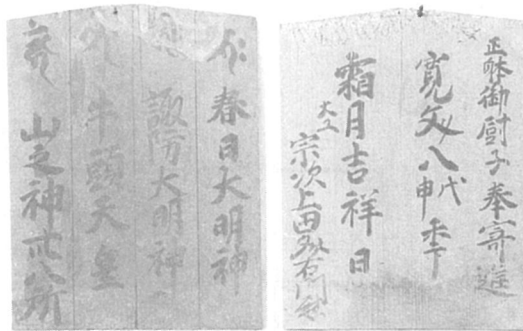 正躰御厨子奉寄進
寛文八戊申
霜月吉祥日
大工 宗次上田
春日大明神
諏防大明神
牛頭天皇
山之神